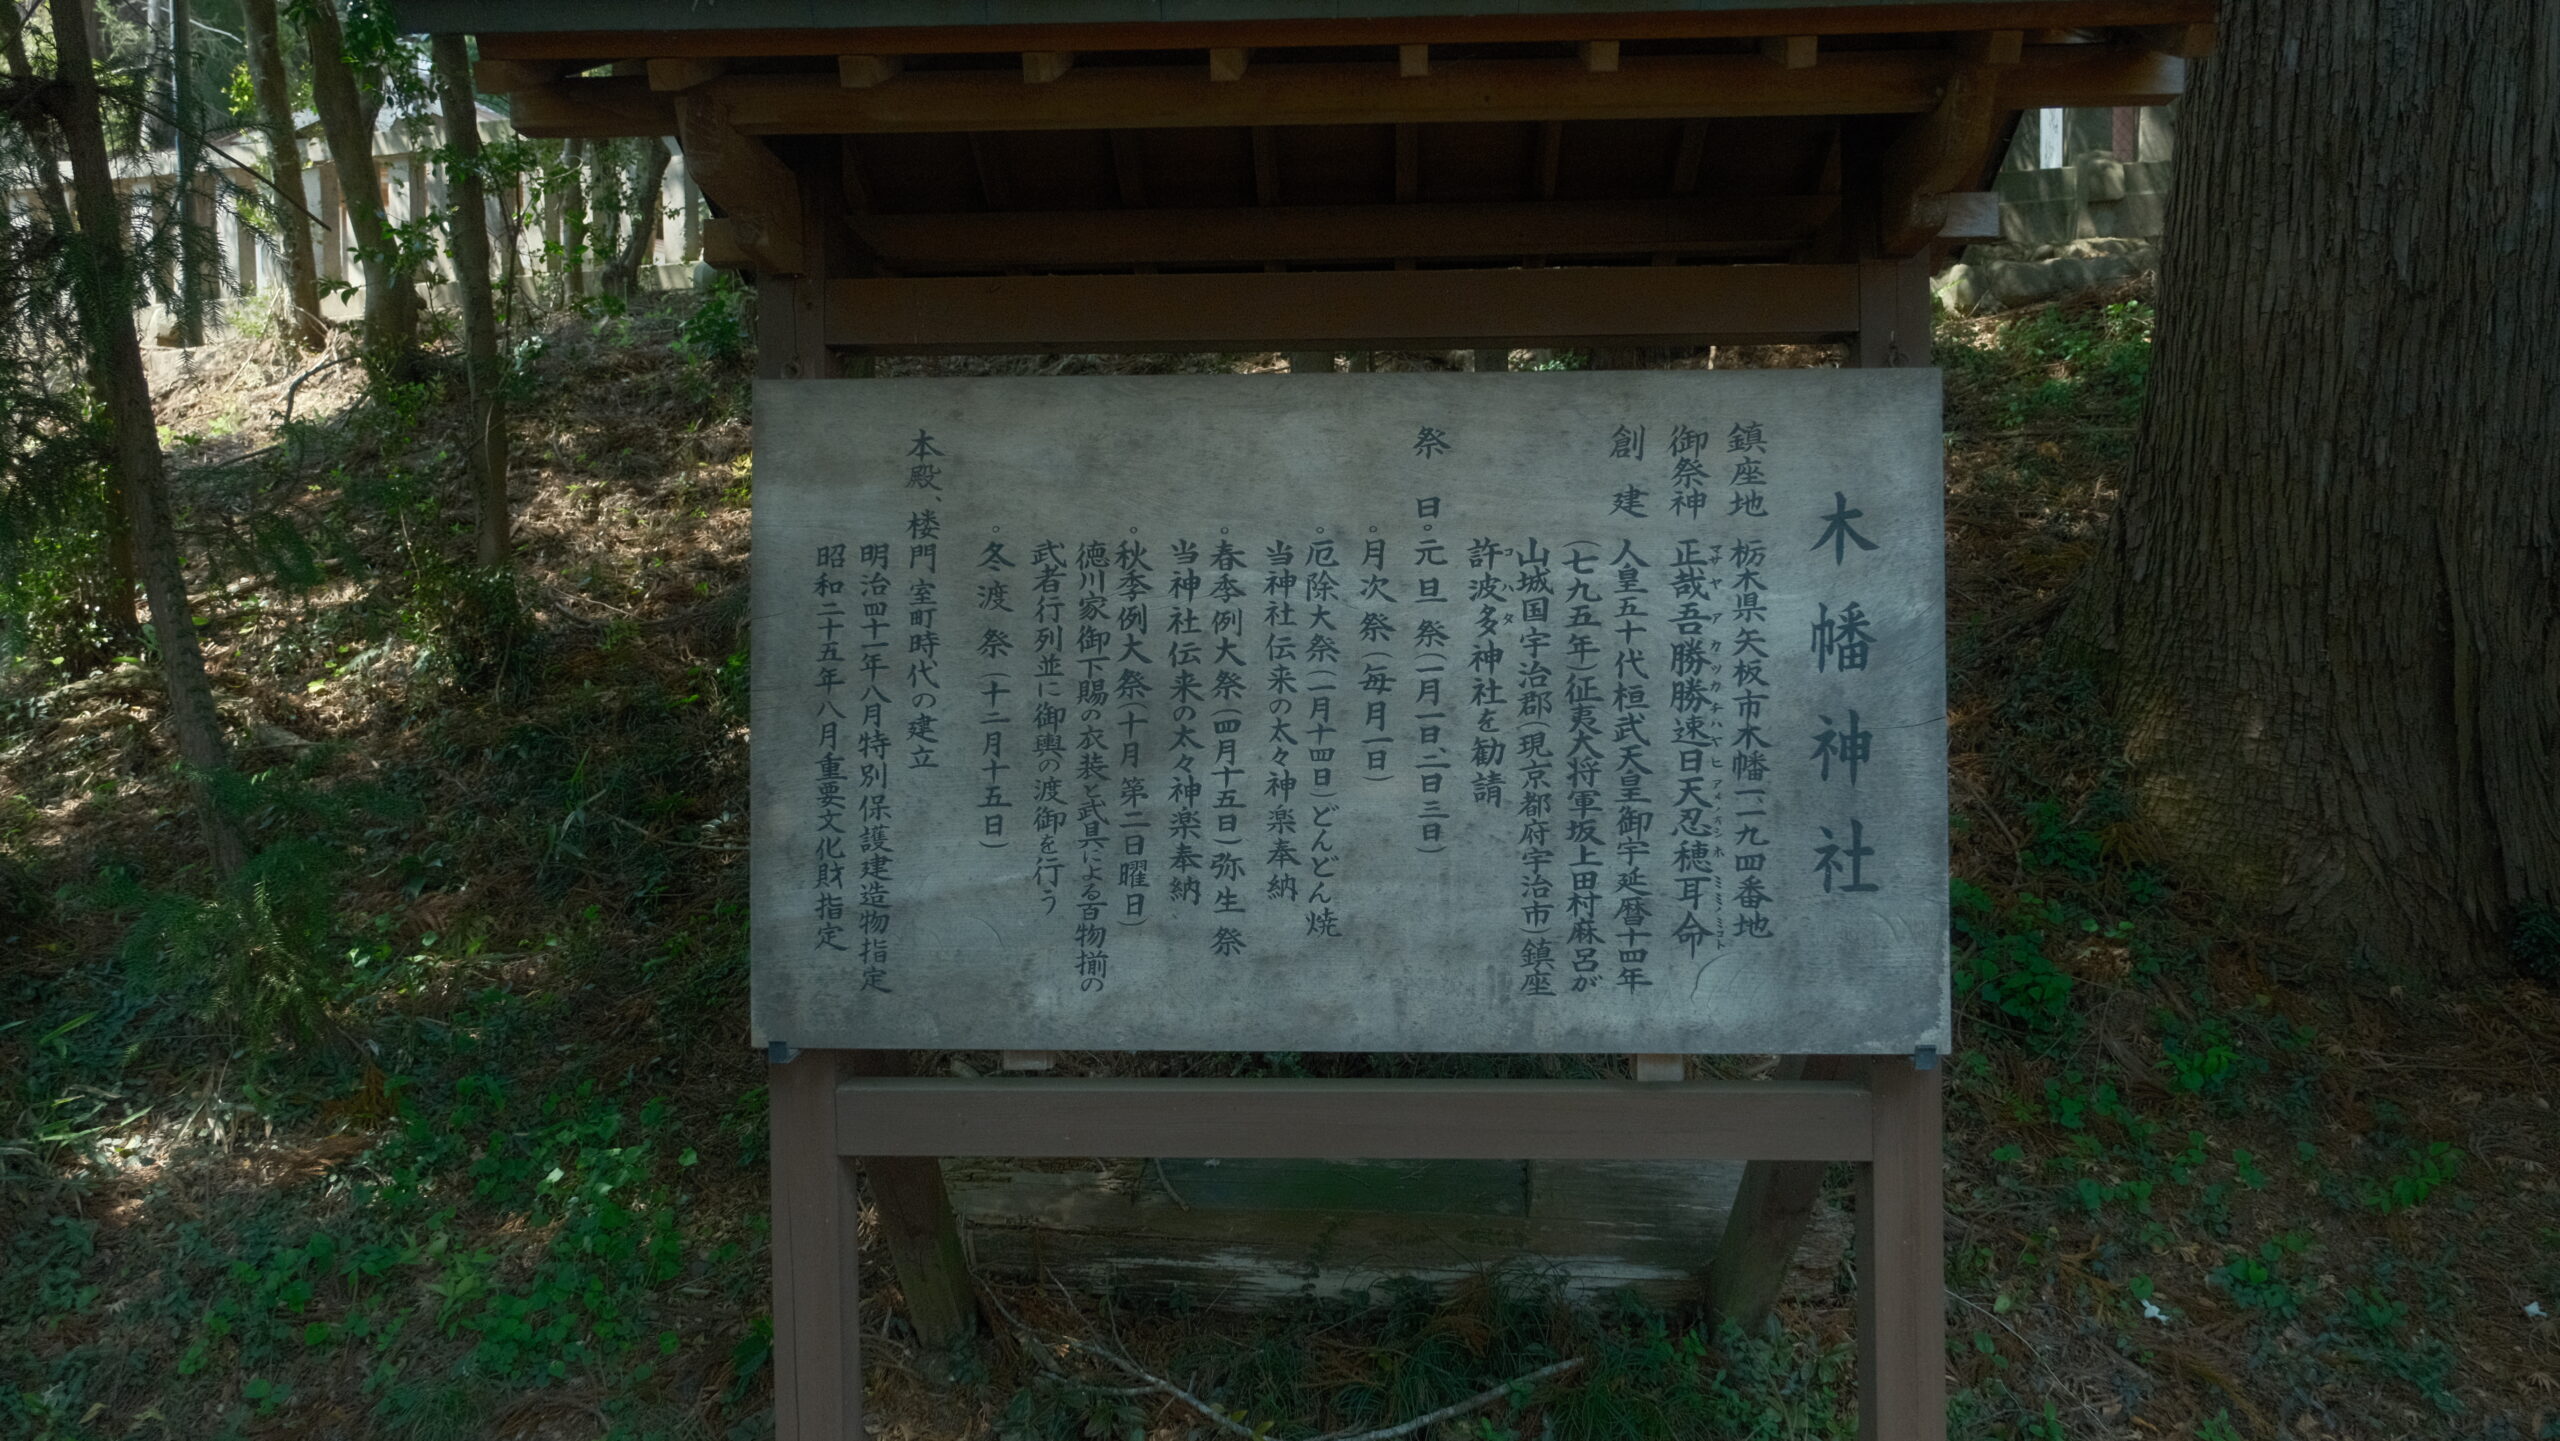 木幡神社
鎮座地 栃木県矢板市木幡一、一九四番地
御祭神 正哉吾勝勝速日天忍穂耳命
マサヤ アカツカチハヤヒ アメノオシホミミノミコト
創建 人皇五十代桓武天皇御宇延暦十四年
(七九五年)征夷大将軍坂上田村麻呂が
山城国宇治郡(現京都府宇治市)鎮座
許波多神社を勧請
コハタ
祭日 。元旦祭(一月一日、二日三日)
。月次祭(毎月一日)
。厄除大祭(一月十四日)どんどん焼
当神社伝来の太々神楽奉納
。春季例大祭(四月十五日)弥生祭
当神社伝来の太々神楽奉納
。秋季例大祭(十月第二日曜日)
徳川家御下賜の衣装と武具による百物揃の
武者行列並に御輿の渡御を行う
。冬渡祭(十二月十五日)
本殿、楼門 室町時代の建立
明治四十一年八月特別保護建造物指定
昭和二十五年八月重要文化財指定